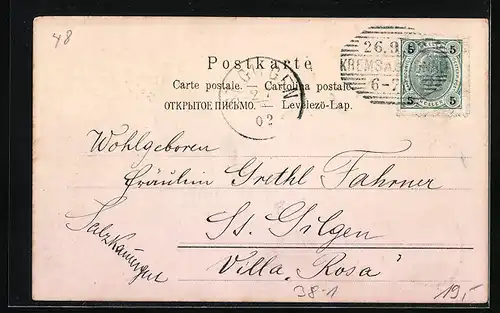 48
Postkarte
Carte postale. — Cartolina postale.
ОТКРЫТОЕ ПИСЬМО. Levelező-Lap.
26.9
KREMS A.
6-7
5 5
5 5
GILGEN
02
Wohlgeboren
Fräulein Grethl Fahrner
St. Gilgen
Salzkammergut
Villa „Rosa"
38-1
19,-